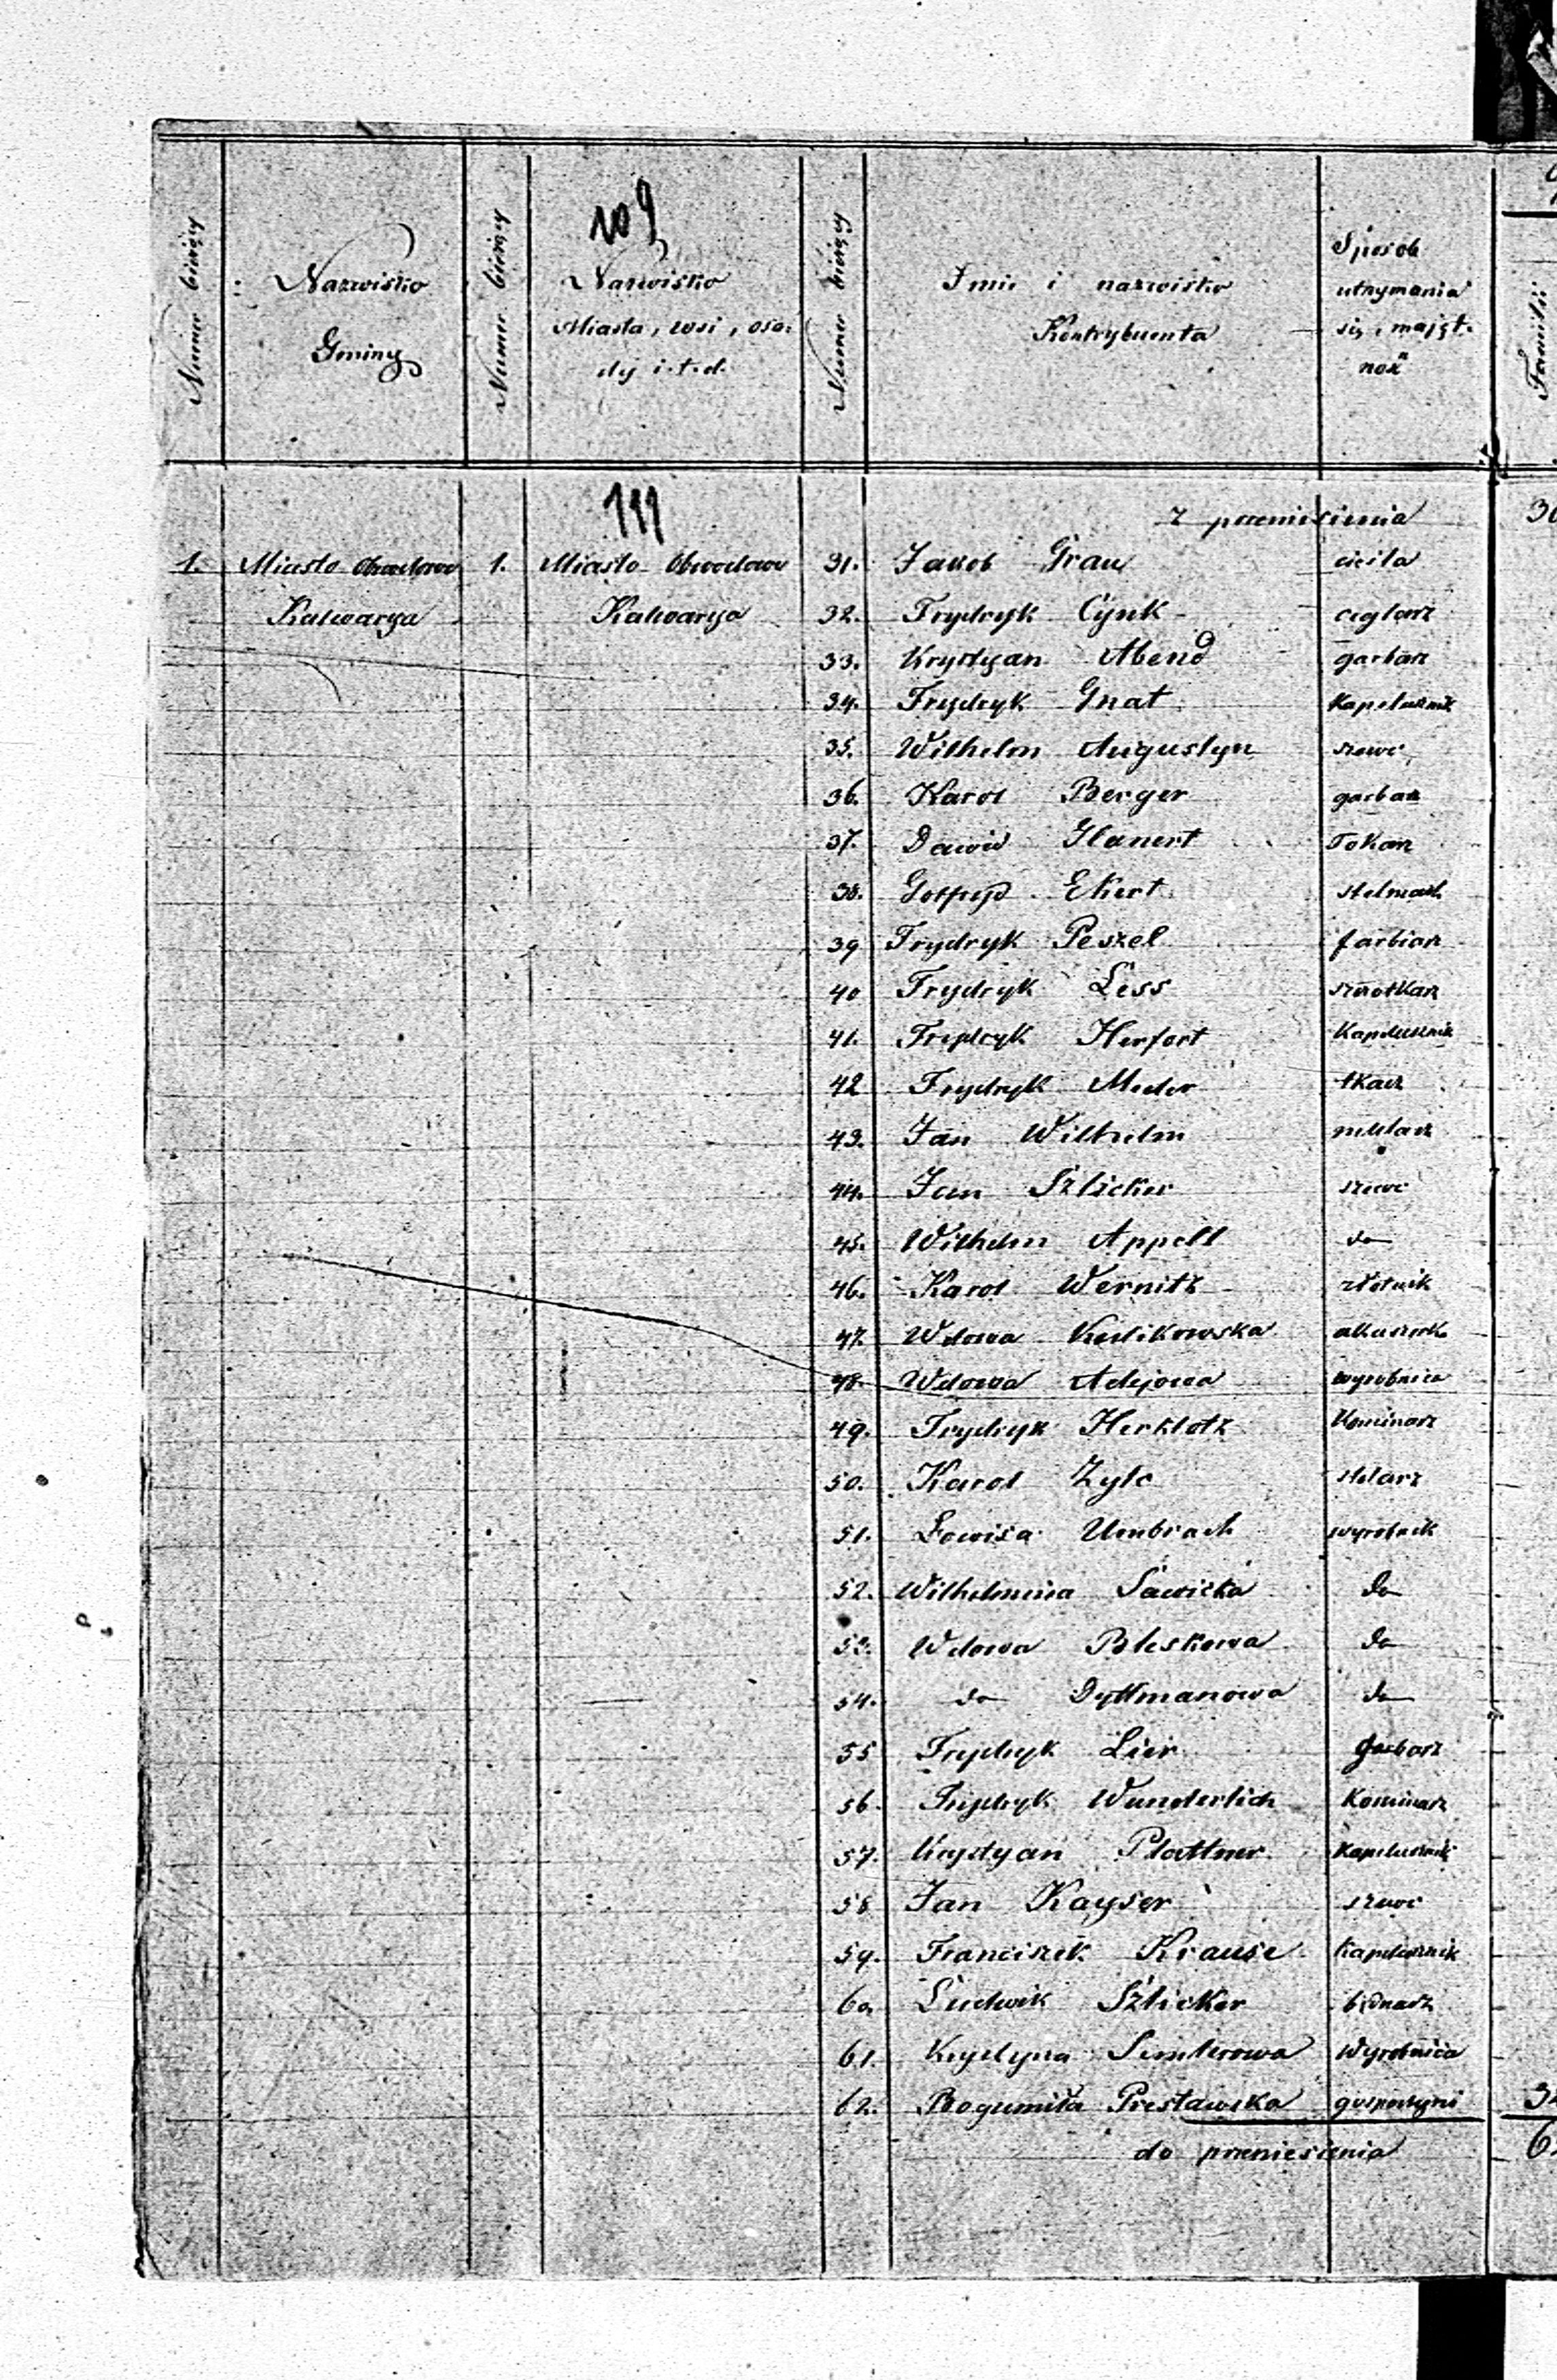 Numer bieżący
Nazwisko
Gminy
Numer bieżący
109
Nazwisko
Miasta, wsi, osa:
dy i.t.d.
Numer bieżący
Imie i nazwisko
Kontrybuenta
Sposob
utrzymania
się, majęt:
ność
Familii
111
z przeniesienia 30
1. Miasto Obwodowe 1. Miasto Obwodowe 31. Jakob Grau cieśla
Kalwarya Kalwarya 32. Frydryk Cynk ceglarz
33. Krystyan Abend garbarz
34. Frydryk Gnat kapelusznik
35. Wilhelm Augustyn szewc
36. Karol Berger garbarz
37. Dawid Glanert Tokarz
38. Gotfryd Ekert stelmach
39 Frydryk Peszel farbiarz
40 Frydryk Less szczotkarz
41. Frydryk Herfort Kapelusznik
42 Frydryk Meder tkacz
43. Jan Wilhelm mularz
44. Jan Szlicker szewc
45. Wilhelm Appelt do
46. Karol Wernitz złotnik
47. Wdowa Kulikowska akuszerka
48. Wdowa Adejowa wyrobnica
49. Frydryk Herklotz Kominiarz
50. Karol Zyle stolarz
51. Lowisa Umbrach wyrobnik
52. Wilhelmina Sawicka do
53. Wdowa Poleskowa do
54. do Dyttmanowa do
55 Frydryk Lier garbarz
56 Frydryk Wunderlich Kominiarz
57. Krystyan Plattner Kapelusznik
58 Jan Kayser szewc
59. Franciszek Krause Kapelusznik
60 Ludwik Szlicker bednarz
61. Krystyna Simlerowa Wyrobnica
62. Bogumiła Presławska gospodyni
do przeniesienia